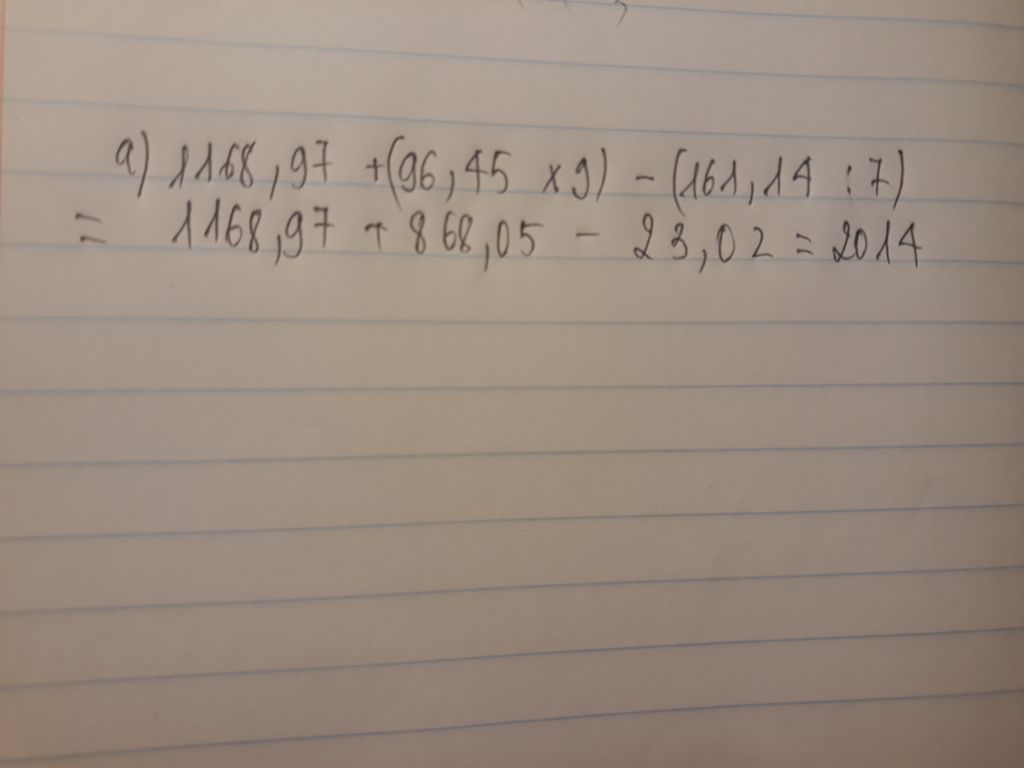 a) 1168,97 +(96,45 x9) -(161,14 :7)
= 1168,97 + 868,05 - 23,02 = 2014